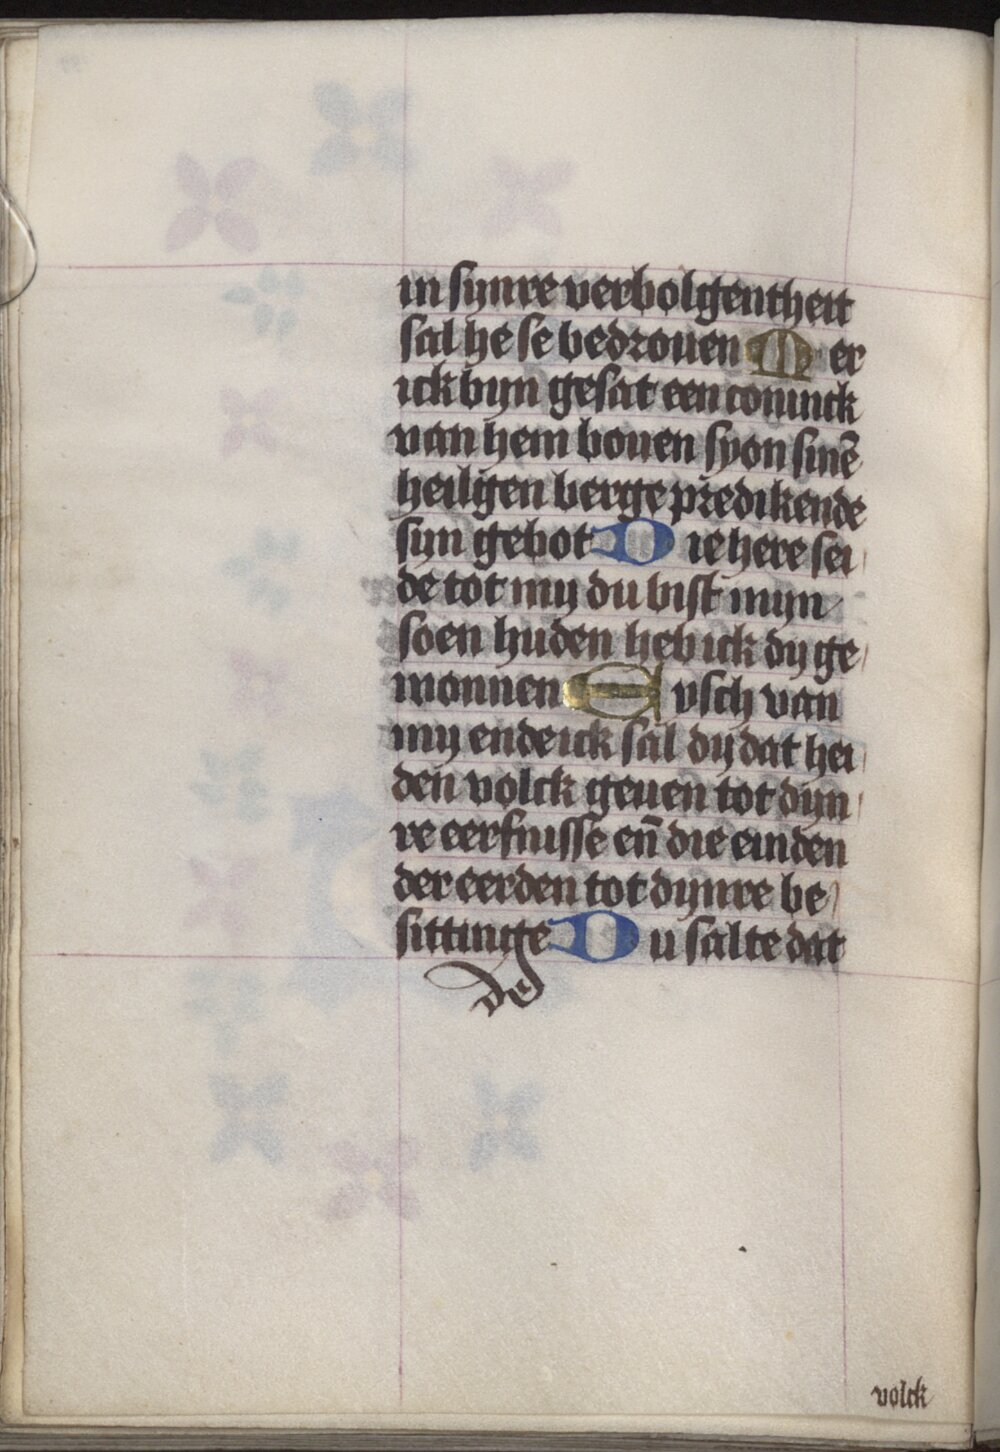 in synre verbolgentheit
sal he se bedrouen Mer
ick byn gesat een coninck
van hem bouen syon sinē
heiligen berge predikende
syn gebot Die here sei
de tot my du bist myn
soen huden heb ick dy ge
wonnen Eysch van
my ende ick sal dy dat hei
den volck geuen tot dyn
re eerfnisse en̄ die einden
der eerden tot dynre be
sittinge Du salte dat
de
volck